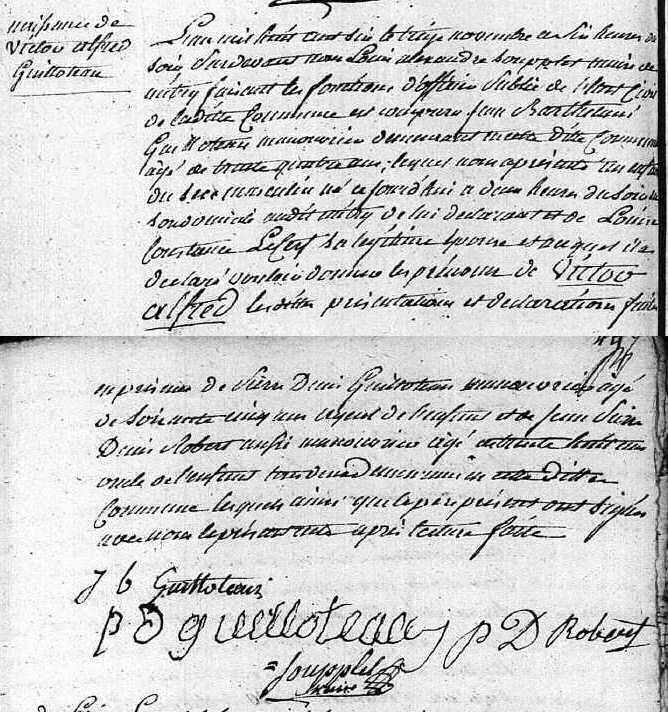 naissance de
Victor alfred
Guilloteau
L'an mil huit cent six le treize novembre a six heures du
soir Pardevant nous Louis alexandre Soupplet maire de
mitry faisant les fonctions d'officier Public de l'Etat Civil
de laditte Commune est comparu Jean Barthelemi
Guilloteau manouvrier demeurant en cette ditte Commune
agé de trente quatre ans, lequel nous a présenté un enfant
du sexe masculin né ce jourd'hui a deux heures du soir en
son domicile audit mitry de lui declarant et de Louise
Constance Lecerf sa legitime epouse et auquel il a
declaré vouloir donner les prénoms de Victor
alfred lesdittes présentations et declarations faites
en présence de Pierre Denis Guilloteau manouvrier agé
de soixante cinq ans ayeul de l'enfant et de Jean Pierre
Denis Robert aussi manouvrier agé de trente huit ans
oncle de l'enfant tous deux demeurant en cette ditte
Commune lesquels ainsi que le pere présent ont signés
avec nous le présent acte après lecture faite
J b Guilloteau
p D guilloteau p D Robert
Soupplet
maire